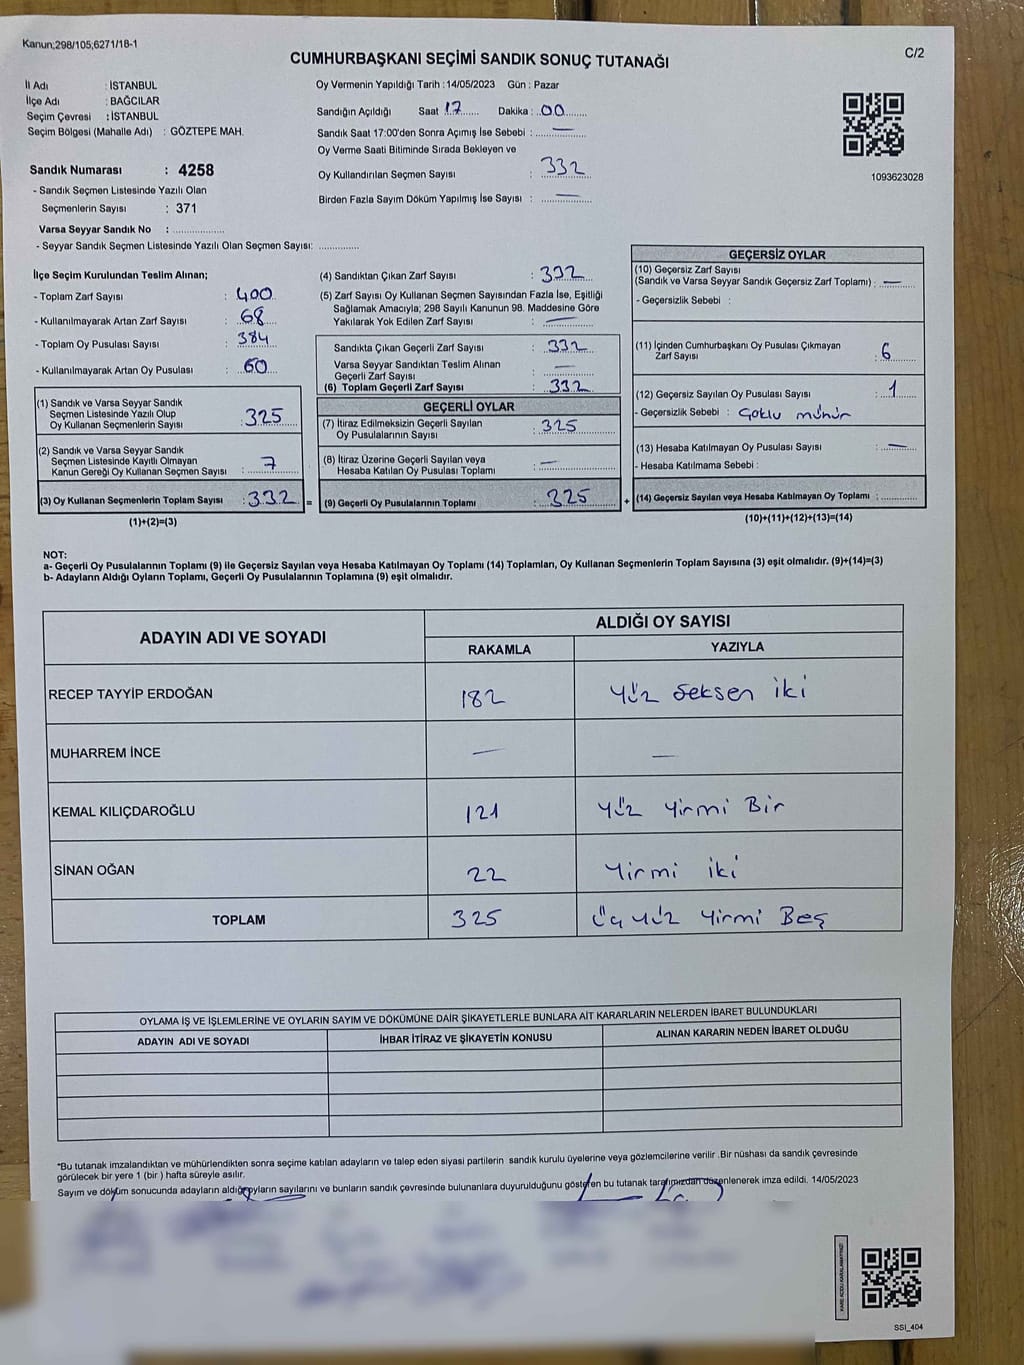 Kanun;298/105;6271/18-1
CUMHURBAŞKANI SEÇİMİ SANDIK SONUÇ TUTANAĞI
C/2
İl Adı : İSTANBUL
İlçe Adı : BAĞCILAR
Seçim Çevresi : İSTANBUL
Seçim Bölgesi (Mahalle Adı) : GÖZTEPE MAH.
Sandık Numarası : 4258
- Sandık Seçmen Listesinde Yazılı Olan
Seçmenlerin Sayısı : 371
Varsa Seyyar Sandık No :
- Seyyar Sandık Seçmen Listesinde Yazılı Olan Seçmen Sayısı:
Oy Vermenin Yapıldığı Tarih : 14/05/2023 Gün : Pazar
Sandığın Açıldığı Saat 17 Dakika : 00
Sandık Saat 17:00'den Sonra Açımış İse Sebebi : —
Oy Verme Saati Bitiminde Sırada Bekleyen ve
Oy Kullandırılan Seçmen Sayısı : 332
Birden Fazla Sayım Döküm Yapılmış İse Sayısı : —
1093623028
İlçe Seçim Kurulundan Teslim Alınan;
- Toplam Zarf Sayısı : 400
- Kullanılmayarak Artan Zarf Sayısı : 68
- Toplam Oy Pusulası Sayısı : 384
- Kullanılmayarak Artan Oy Pusulası : 60
(1) Sandık ve Varsa Seyyar Sandık
Seçmen Listesinde Yazılı Olup
Oy Kullanan Seçmenlerin Sayısı : 325
(2) Sandık ve Varsa Seyyar Sandık
Seçmen Listesinde Kayıtlı Olmayan
Kanun Gereği Oy Kullanan Seçmen Sayısı : 7
(3) Oy Kullanan Seçmenlerin Toplam Sayısı : 332 =
(1)+(2)=(3)
(4) Sandıktan Çıkan Zarf Sayısı : 332
(5) Zarf Sayısı Oy Kullanan Seçmen Sayısından Fazla İse, Eşitliği
Sağlamak Amacıyla; 298 Sayılı Kanunun 98. Maddesine Göre
Yakılarak Yok Edilen Zarf Sayısı : —
Sandıkta Çıkan Geçerli Zarf Sayısı : 332
Varsa Seyyar Sandıktan Teslim Alınan
Geçerli Zarf Sayısı : —
(6) Toplam Geçerli Zarf Sayısı : 332
GEÇERLİ OYLAR
(7) İtiraz Edilmeksizin Geçerli Sayılan
Oy Pusulalarının Sayısı : 325
(8) İtiraz Üzerine Geçerli Sayılan veya
Hesaba Katılan Oy Pusulası Toplamı : —
(9) Geçerli Oy Pusulalarının Toplamı : 325 +
GEÇERSİZ OYLAR
(10) Geçersiz Zarf Sayısı
(Sandık ve Varsa Seyyar Sandık Geçersiz Zarf Toplamı) : —
- Geçersizlik Sebebi :
(11) İçinden Cumhurbaşkanı Oy Pusulası Çıkmayan
Zarf Sayısı : 6
(12) Geçersiz Sayılan Oy Pusulası Sayısı : 1
- Geçersizlik Sebebi : Çoklu mühür
(13) Hesaba Katılmayan Oy Pusulası Sayısı : —
- Hesaba Katılmama Sebebi :
(14) Geçersiz Sayılan veya Hesaba Katılmayan Oy Toplamı :
(10)+(11)+(12)+(13)=(14)
NOT:
a- Geçerli Oy Pusulalarının Toplamı (9) ile Geçersiz Sayılan veya Hesaba Katılmayan Oy Toplamı (14) Toplamları, Oy Kullanan Seçmenlerin Toplam Sayısına (3) eşit olmalıdır. (9)+(14)=(3)
b- Adayların Aldığı Oyların Toplamı, Geçerli Oy Pusulalarının Toplamına (9) eşit olmalıdır.
ADAYIN ADI VE SOYADI
ALDIĞI OY SAYISI
RAKAMLA YAZIYLA
RECEP TAYYİP ERDOĞAN 182 Yüz Seksen iki
MUHARREM İNCE — —
KEMAL KILIÇDAROĞLU 121 Yüz Yirmi Bir
SİNAN OĞAN 22 Yirmi iki
TOPLAM 325 Üç Yüz Yirmi Beş
OYLAMA İŞ VE İŞLEMLERİNE VE OYLARIN SAYIM VE DÖKÜMÜNE DAİR ŞİKAYETLERLE BUNLARA AİT KARARLARIN NELERDEN İBARET BULUNDUKLARI
ADAYIN ADI VE SOYADI İHBAR İTİRAZ VE ŞİKAYETİN KONUSU ALINAN KARARIN NEDEN İBARET OLDUĞU
*Bu tutanak imzalandıktan ve mühürlendikten sonra seçime katılan adayların ve talep eden siyasi partilerin sandık kurulu üyelerine veya gözlemcilerine verilir .Bir nüshası da sandık çevresinde
görülecek bir yere 1 (bir ) hafta süreyle asılır.
Sayım ve döküm sonucunda adayların aldığı oyların sayılarını ve bunların sandık çevresinde bulunanlara duyurulduğunu gösteren bu tutanak tarafımızdan düzenlenerek imza edildi. 14/05/2023
SSI_404